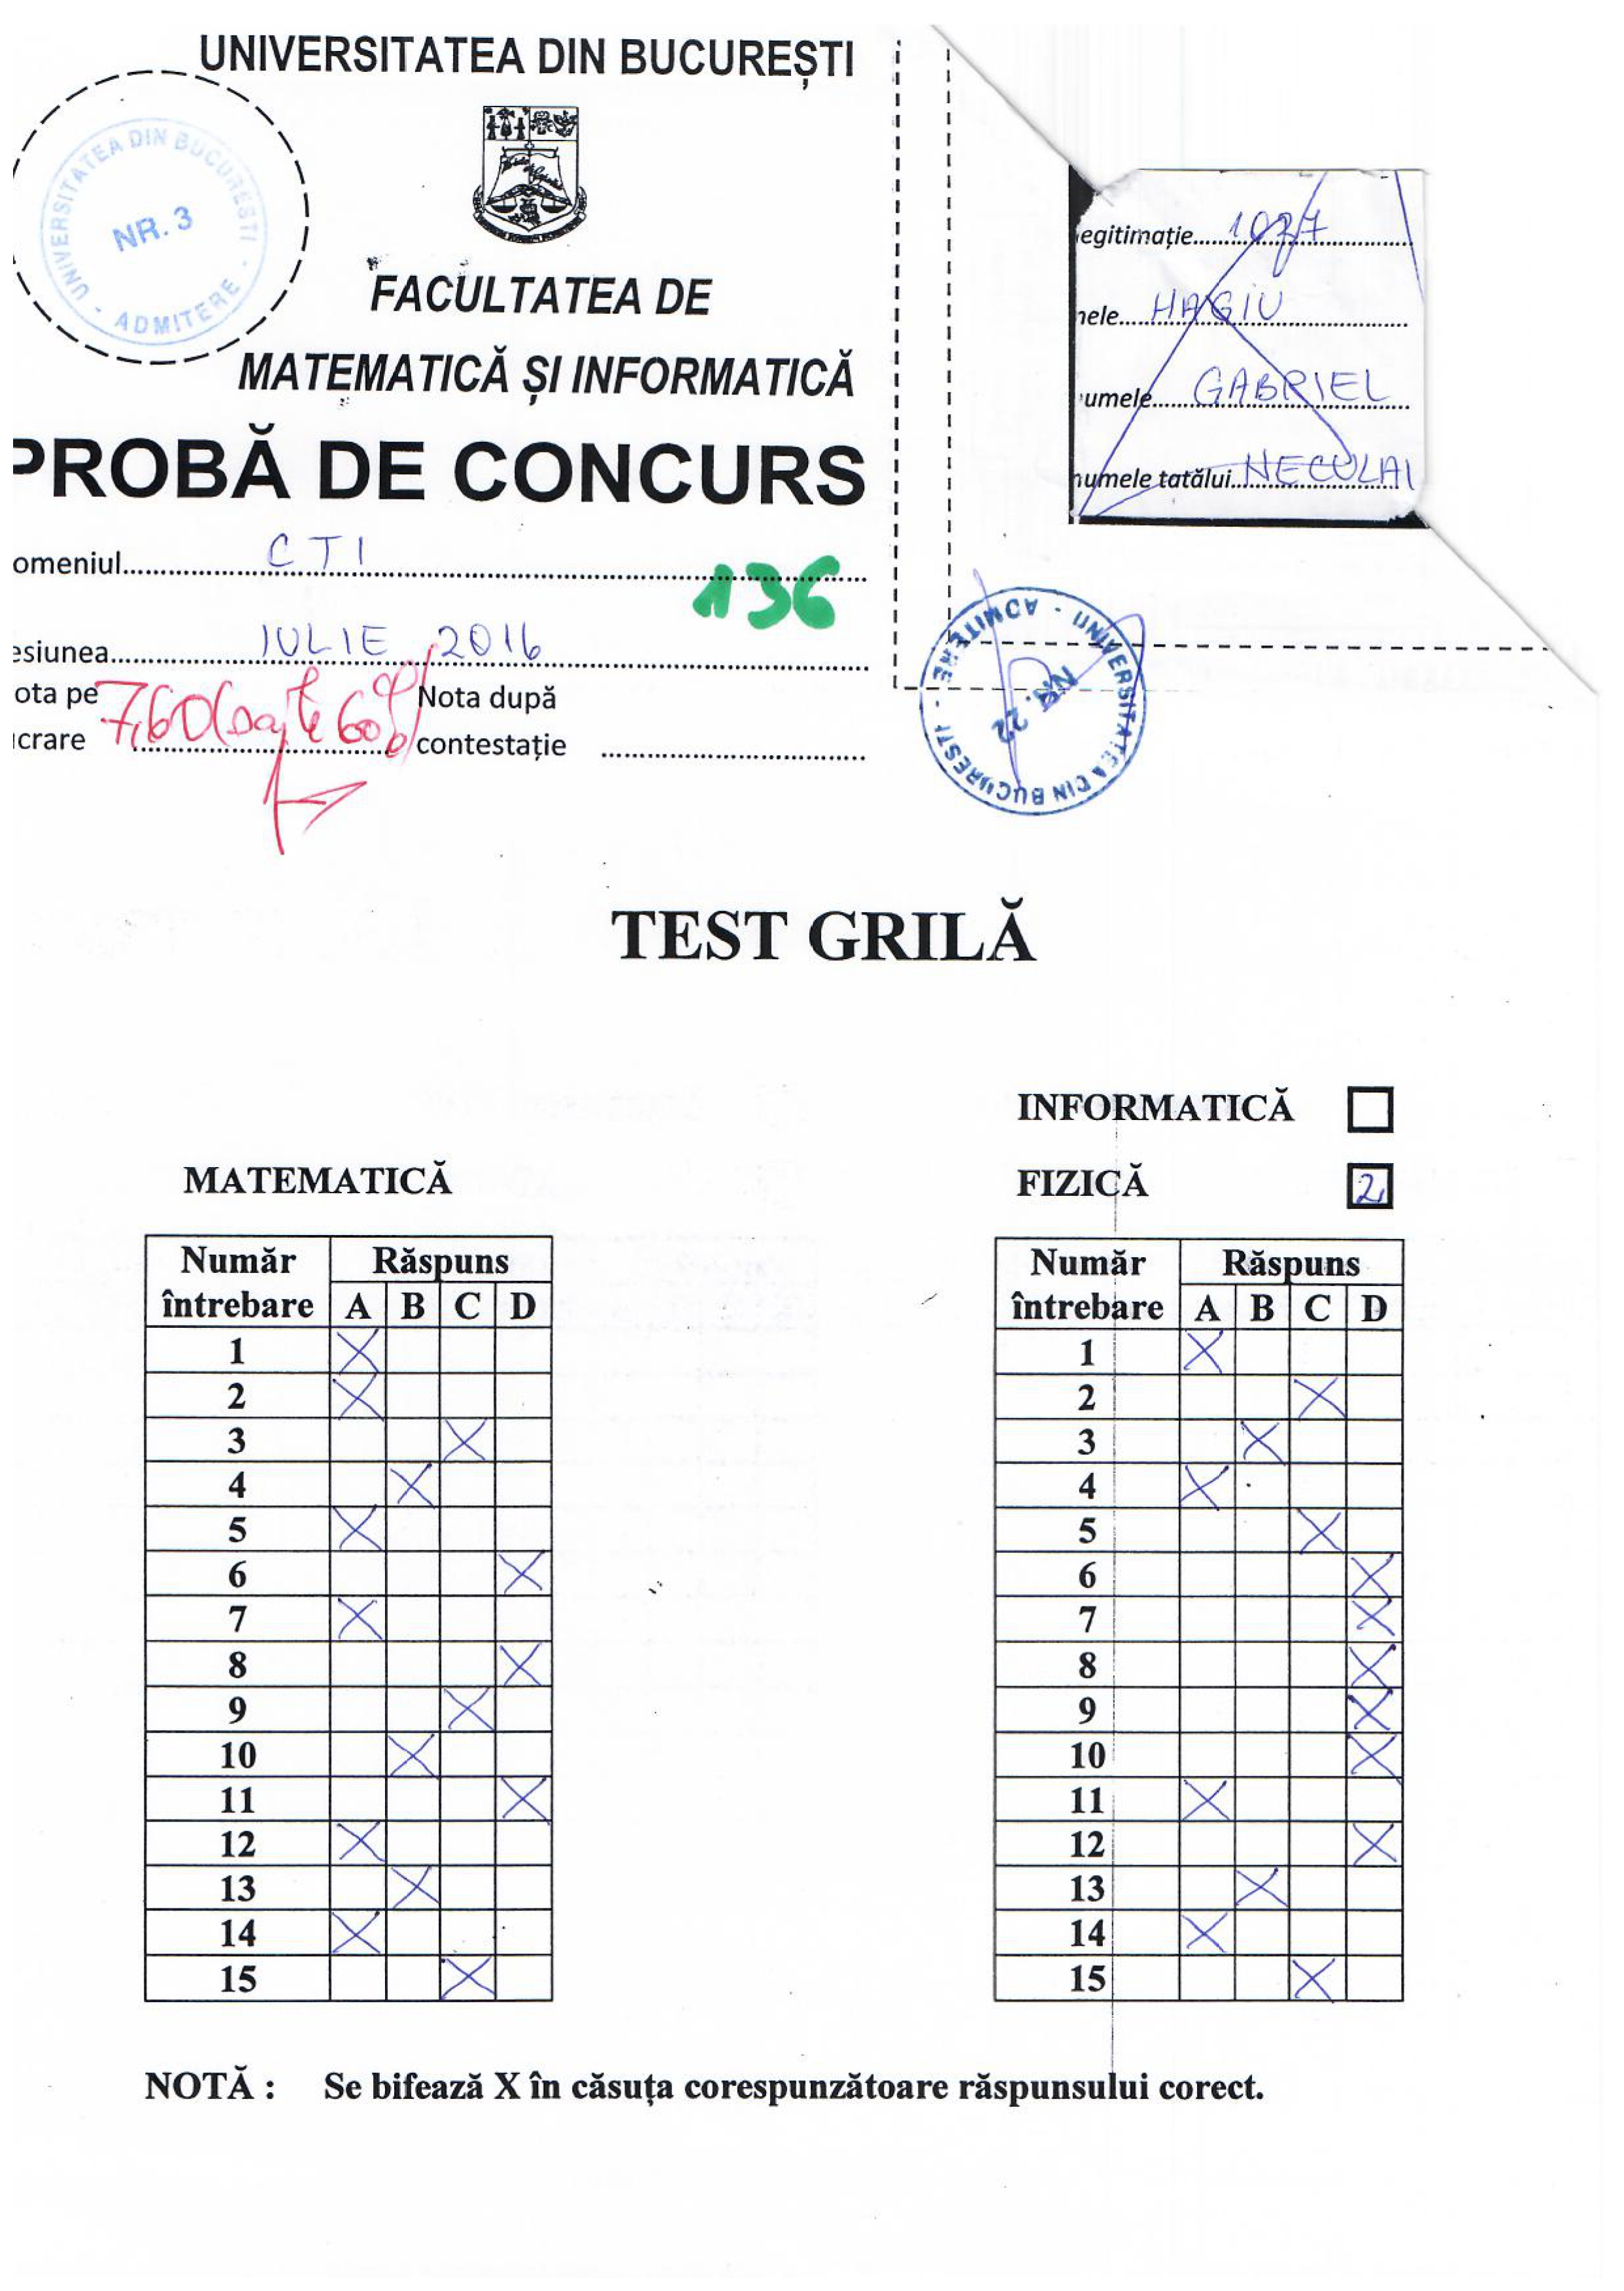 UNIVERSITATEA DIN BUCUREȘTI
UNIVERSITATEA DIN BUCURESTI - ADMITERE -
NR. 3
FACULTATEA DE
MATEMATICĂ ȘI INFORMATICĂ
PROBĂ DE CONCURS
omeniul CTI
136
esiunea IULIE 2016
ota pe 7,60 (șapte 60%) Nota după
crare contestație
egitimație 1027
ele HAGIU
umele GABRIEL
numele tatălui NECULAI
UNIVERSITATEA DIN BUCURESTI - ADMITERE -
NR. 22
TEST GRILĂ
INFORMATICĂ
MATEMATICĂ
FIZICĂ 2
Număr întrebare Răspuns
A B C D
1 X
2 X
3 X
4 X
5 X
6 X
7 X
8 X
9 X
10 X
11 X
12 X
13 X
14 X
15 X
Număr întrebare Răspuns
A B C D
1 X
2 X
3 X
4 X
5 X
6 X
7 X
8 X
9 X
10 X
11 X
12 X
13 X
14 X
15 X
NOTĂ : Se bifează X în căsuța corespunzătoare răspunsului corect.